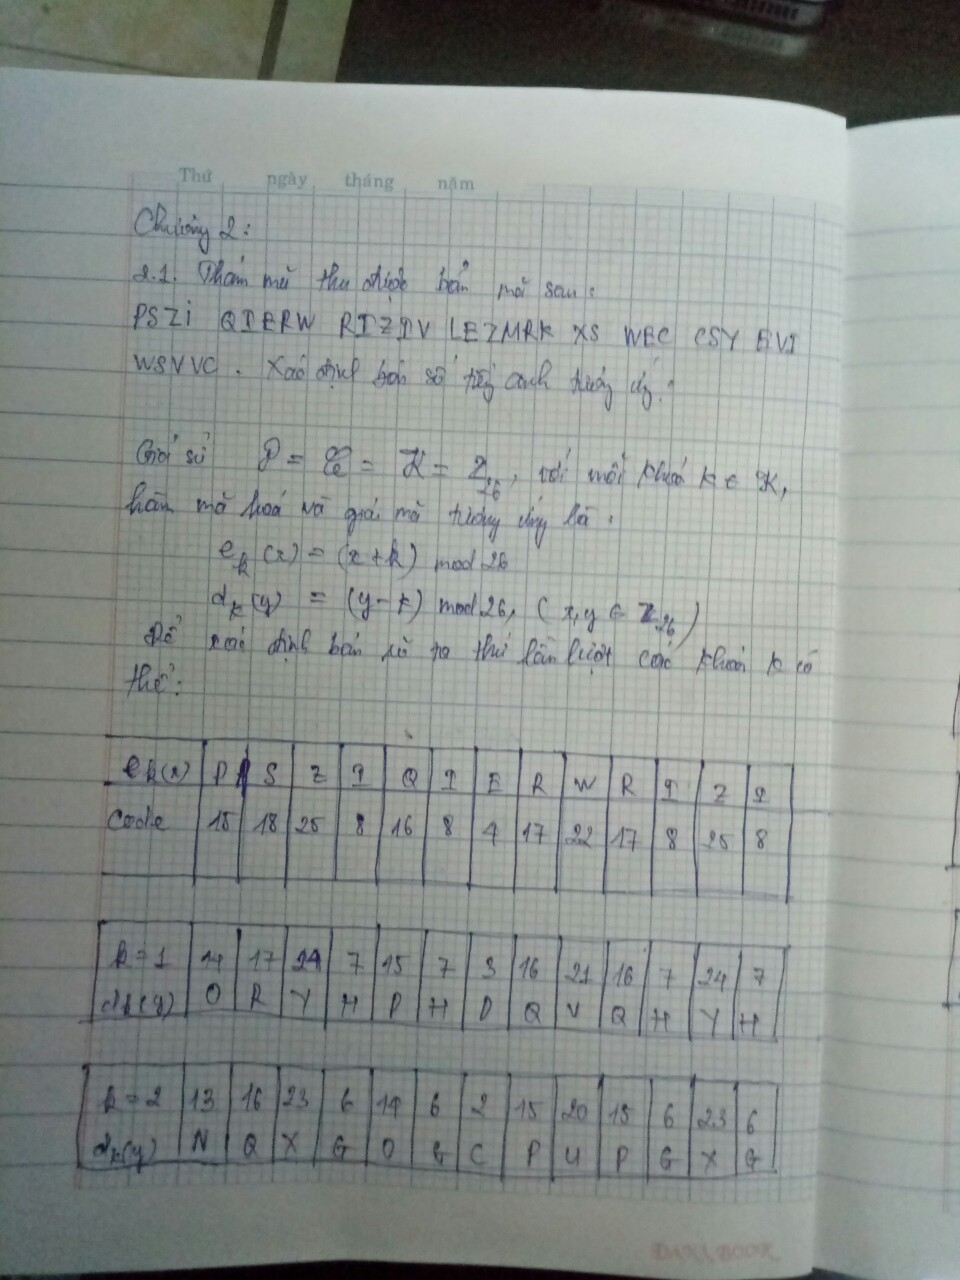 Thứ ngày tháng năm
Chương 2:
2.1. Thám mã thu được bản mã sau:
PSZI QIERW RIZIV LEZMRK XS WEC CSY EVI
WSVVC. Xác định bản rõ tiếng anh tương ứng?
Giả sử P = C = K = Z26, với mỗi khoá k ∈ K,
hàm mã hoá và giải mã tương ứng là:
ek(x) = (x+k) mod 26
dk(y) = (y-k) mod 26, (x,y ∈ Z26)
Để xác định bản rõ ta thử lần lượt các khoá k có
thể:
ek(x) P S Z I Q I E R W R I Z I
Code 15 18 25 8 16 8 4 17 22 17 8 25 8
k=1 14 17 24 7 15 7 3 16 21 16 7 24 7
dk(y) O R Y H P H D Q V Q H Y H
k=2 13 16 23 6 14 6 2 15 20 15 6 23 6
dk(y) N Q X G O G C P U P G X G
DARABOOK